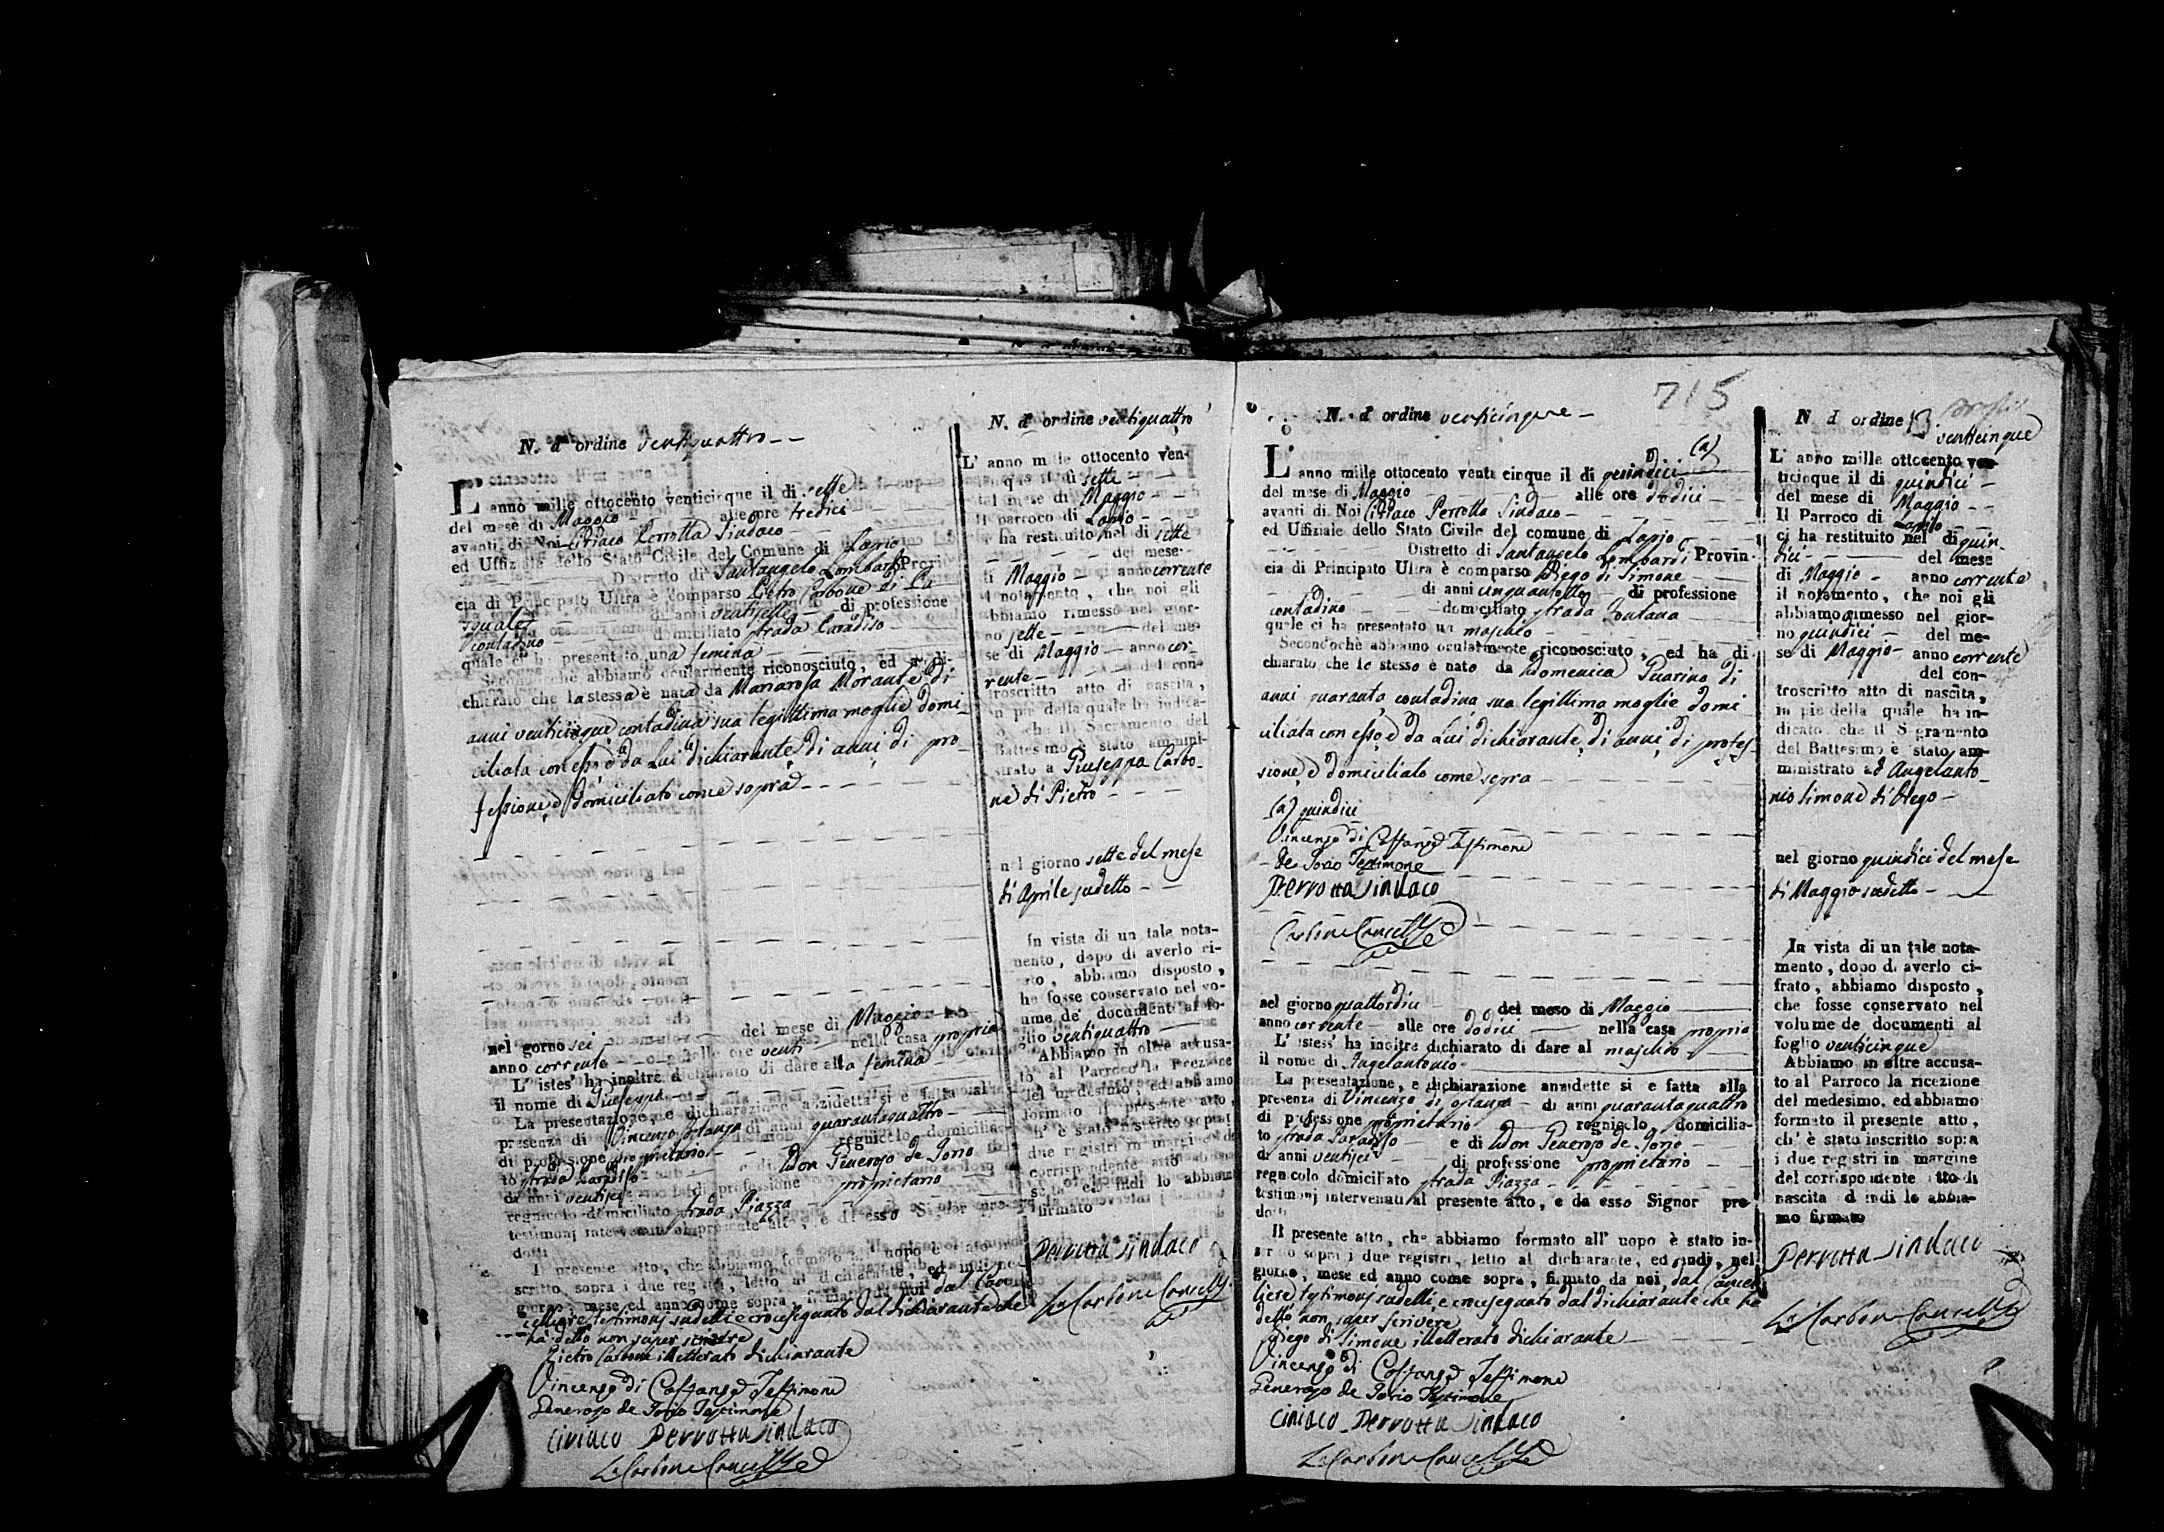 N. d' ordine ventiquattro
L' anno mille ottocento venticinque il di sette
del mese di Maggio alle ore tredici
avanti di Noi Ciriaco Perrotta Sindaco
ed Uffiziale dello Stato Civile del Comune di Lapio
Distretto di Santangelo Lombardi Provin-
cia di Principato Ultra è comparso Pietro Carbone di Pa
squale di anni ventisette di professione
contadino domiciliato strada Paradiso
quale ci ha presentato una femina
Secondochè abbiamo ocularmente riconosciuto, ed ha di-
chiarato che la stessa è nata da Mariarosa Morante di
anni venticinque contadina sua legittima moglie domi-
ciliata con esso e da Lui dichiarante di anni di pro-
fessione e domiciliato come sopra
nel gorno sei del mese di Maggio
anno corrente alle ore venti nella casa propria
L' istes' ha inoltre dichiarato di dare alla femina
il nome di Giuseppa
La presentazione, e dichiarazione anzidetta si è fatta alla
presenza di Vincenzo di Costanza di anni quarantaquattro
di professione proprietario regnicolo domicilia-
to strada Paradiso e di Don Generoso de Iorio
di anni ventisei di professione proprietario
regnicolo domiciliato strada Piazza
testimonj intervenuti al presente atto, e da esso Signor pro-
dotti
Il presente atto, che abbiamo formato all' uopo è stato in-
scritto sopra i due registri, letto al dichiarante, ed indi, nel
giorno, mese ed anno come sopra, firmato da noi dal Can-
celliere testimonj sudetti e crocesegnato dal dichiarante che
ha detto non saper scrivere
Pietro Carbone illetterato dichiarante
Vincenzo di Costanza Testimone
Generoso de Iorio Testimone
Ciriaco Perrotta Sindaco
Carbone Cancelle
N. d' ordine ventiquattro
L' anno mille ottocento ven-
que il di sette
del mese di Maggio
Il parroco di Lapio
ha restituito nel di sette
del mese
di Maggio anno corrente
il notamento, che noi gli
abbiamo rimesso nel gior-
no sette del me-
se di Maggio anno cor-
rente del con-
troscritto atto di nascita,
in piè della quale ha indica-
to, che il Sacramento del
Battesimo è stato ammini-
strato a Giuseppa Carbo-
ne di Pietro
nel giorno sette del mese
di Aprile sudetto
In vista di un tale nota-
mento, dopo di averlo ci-
frato, abbiamo disposto,
che fosse conservato nel vo-
lume de' documenti al fo-
glio ventiquattro
Abbiamo in oltre accusa-
to al Parroco la ricezione
del medesimo, ed abbiamo
formato il presente atto,
ch' è stato inscritto sopra i
due registri in margine del
corrispondente atto di na-
scita ed indi lo abbiam
firmato
Perrotta Sindaco
Carbone Cancelle
715
N. d' ordine venticinque
L' anno mille ottocento venti cinque il di quindici (a)
del mese di Maggio alle ore dodici
avanti di Noi Ciriaco Perrotta Sindaco
ed Uffiziale dello Stato Civile del comune di Lapio
Distretto di Santangelo Lombardi Provin-
cia di Principato Ultra è comparso Diego di Simone
di anni cinquantotto di professione
contadino domiciliato strada Fontana
quale ci ha presentato un maschio
Secondochè abbiamo ocularmente riconosciuto, ed ha di-
chiarato che lo stesso è nato da Domenica Guarino di
anni quaranta contadina sua legittima moglie domi
ciliata con esso e da Lui dichiarante di anni di profes-
sione e domiciliato come sopra
(a) quindici
Vincenzo di Costanza Testimone
de Iorio Testimone
Perrotta Sindaco
Carbone Cancelle
nel giorno quattordici del mese di Maggio
anno corrente alle ore dodici nella casa propria
L' istess' ha inoltre dichiarato di dare al maschio
il nome di Angelantonio
La presentazione, e dichiarazione anzidette si e fatta alla
presenza di Vincenzo di Costanza di anni quarantaquattro
di professione proprietario regnicolo domicilia-
to strada Paradiso e di Don Generoso de Iorio
di anni ventisei di professione proprietario
regnicolo domiciliato strada Piazza
testimonj intervenuti al presente atto, e da esso Signor pro-
dotti
Il presente atto, che abbiamo formato all' uopo è stato in-
scritto sopra i due registri, letto al dichiarante, ed indi, nel
giorno, mese ed anno come sopra, firmato da noi dal Cancel
liere testimonj sudetti e crocesegnato dal dichiarante che ha
detto non saper scrivere
Diego di Simone illetterato dichiarante
Vincenzo di Costanza Testimone
Generoso de Iorio Testimone
Ciriaco Perrotta Sindaco
Carbone Cancelle
N d ordine 13
venticinque
L' anno mille ottocento ven-
ticinque il di quindici
del mese di Maggio
Il Parroco di Lapio
ci ha restituito nel di quin-
dici del mese
di Maggio anno corrente
il notamento, che noi gli
abbiamo rimesso nel gior-
no quindici del me-
se di Maggio anno corrente
del con-
troscritto atto di nascita,
in piè della quale ha in-
dicato che il Sagramento
del Battesimo è stato am-
ministrato ad Angelanto-
nio Simone di Diego
nel giorno quindici del mese
di Maggio sudetto
In vista di un tale nota-
mento, dopo di averlo ci-
frato, abbiamo disposto,
che fosse conservato nel
volume de documenti al
foglio venticinque
Abbiamo in oltre accusa-
to al Parroco la ricezione
del medesimo, ed abbiamo
formato il presente atto,
ch' è stato inscritto sopra
i due registri in margine
del corrispondente atto di
nascita d indi lo abbia-
mo firmato
Perrotta Sindaco
Carbone Cancelle